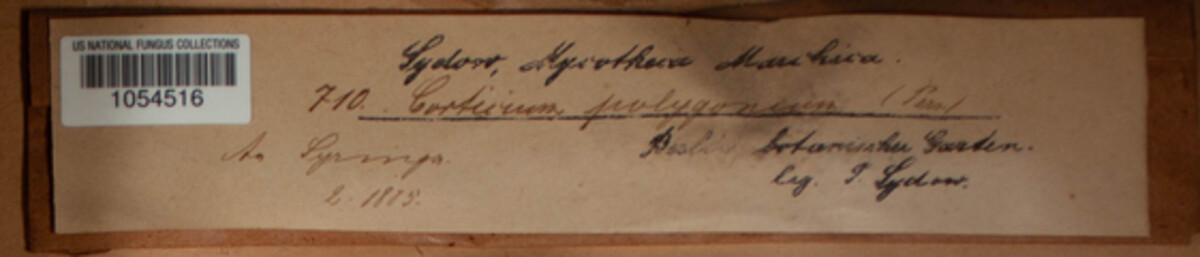 US NATIONAL FUNGUS COLLECTIONS
1054516
Sydow, Mycotheca Marchica.
710. Corticium polygonium (Pers.)
An Syringa.
Berlin botanischer Garten.
2. 1885.
leg. P. Sydow.